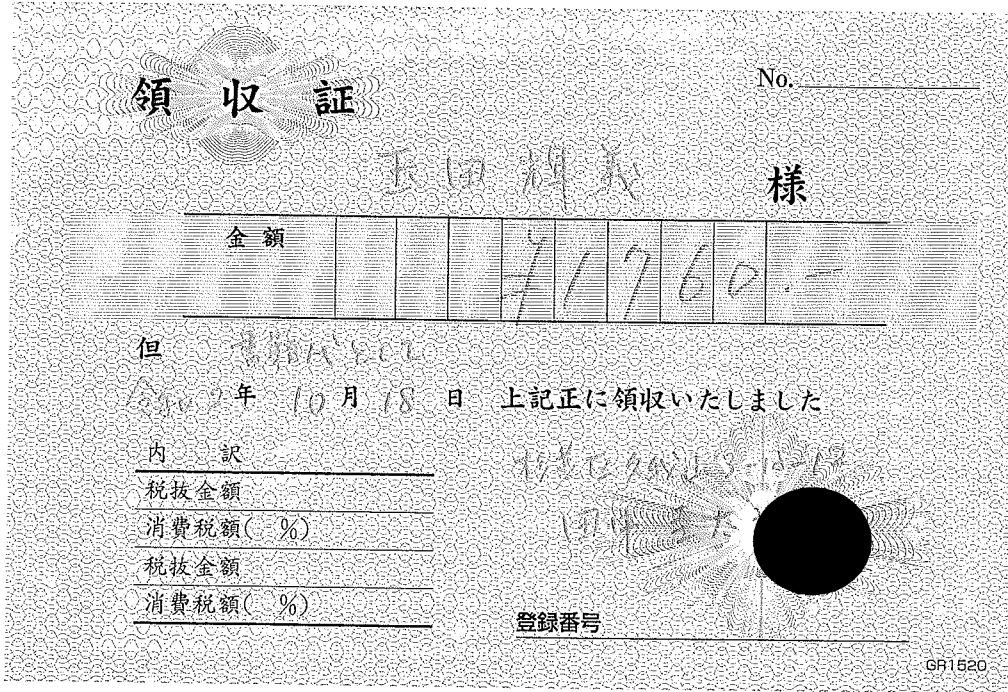 領収証
No.
玉田輝義 様
金額 ¥1760.-
但 書籍代として
令和 年 10月18日 上記正に領収いたしました
内訳
税抜金額
消費税額( %)
税抜金額
消費税額( %)
杉並区久我山
田中
登録番号
GR1520